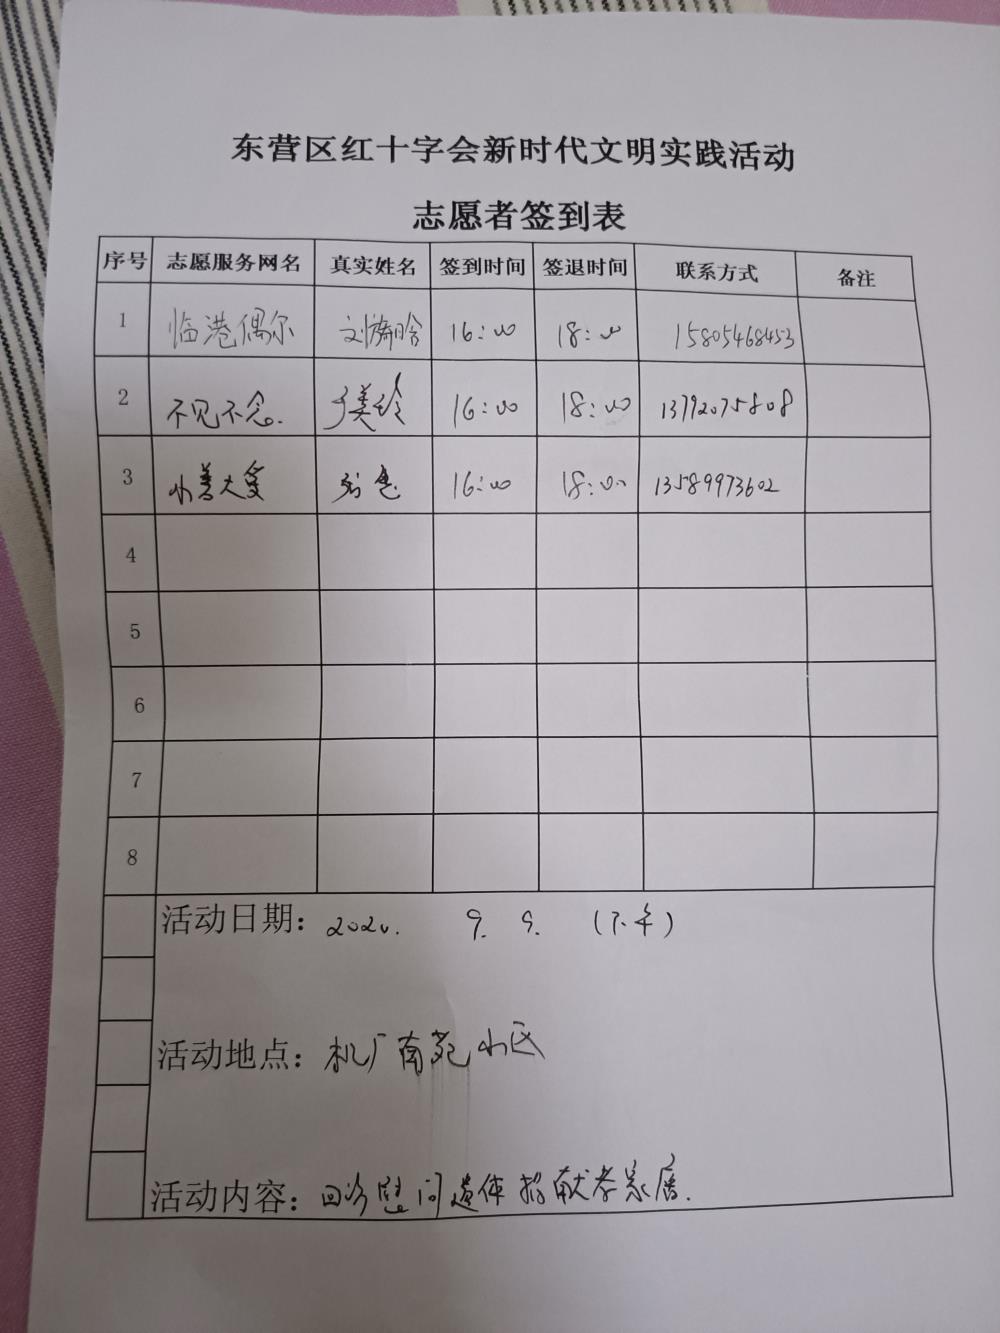 东营区红十字会新时代文明实践活动
志愿者签到表
序号 志愿服务网名 真实姓名 签到时间 签退时间 联系方式 备注
1 临港偶尔 刘 16:00 18:00 15805468453
2 不见不念. 于美玲 16:00 18:00 13792075808
3 小善大爱 16:00 18:00 13589973602
4
5
6
7
8
活动日期: 2020. 9. 9. (下午)
活动地点: 机厂南苑小区
活动内容: 回访慰问遗体捐献者家属.